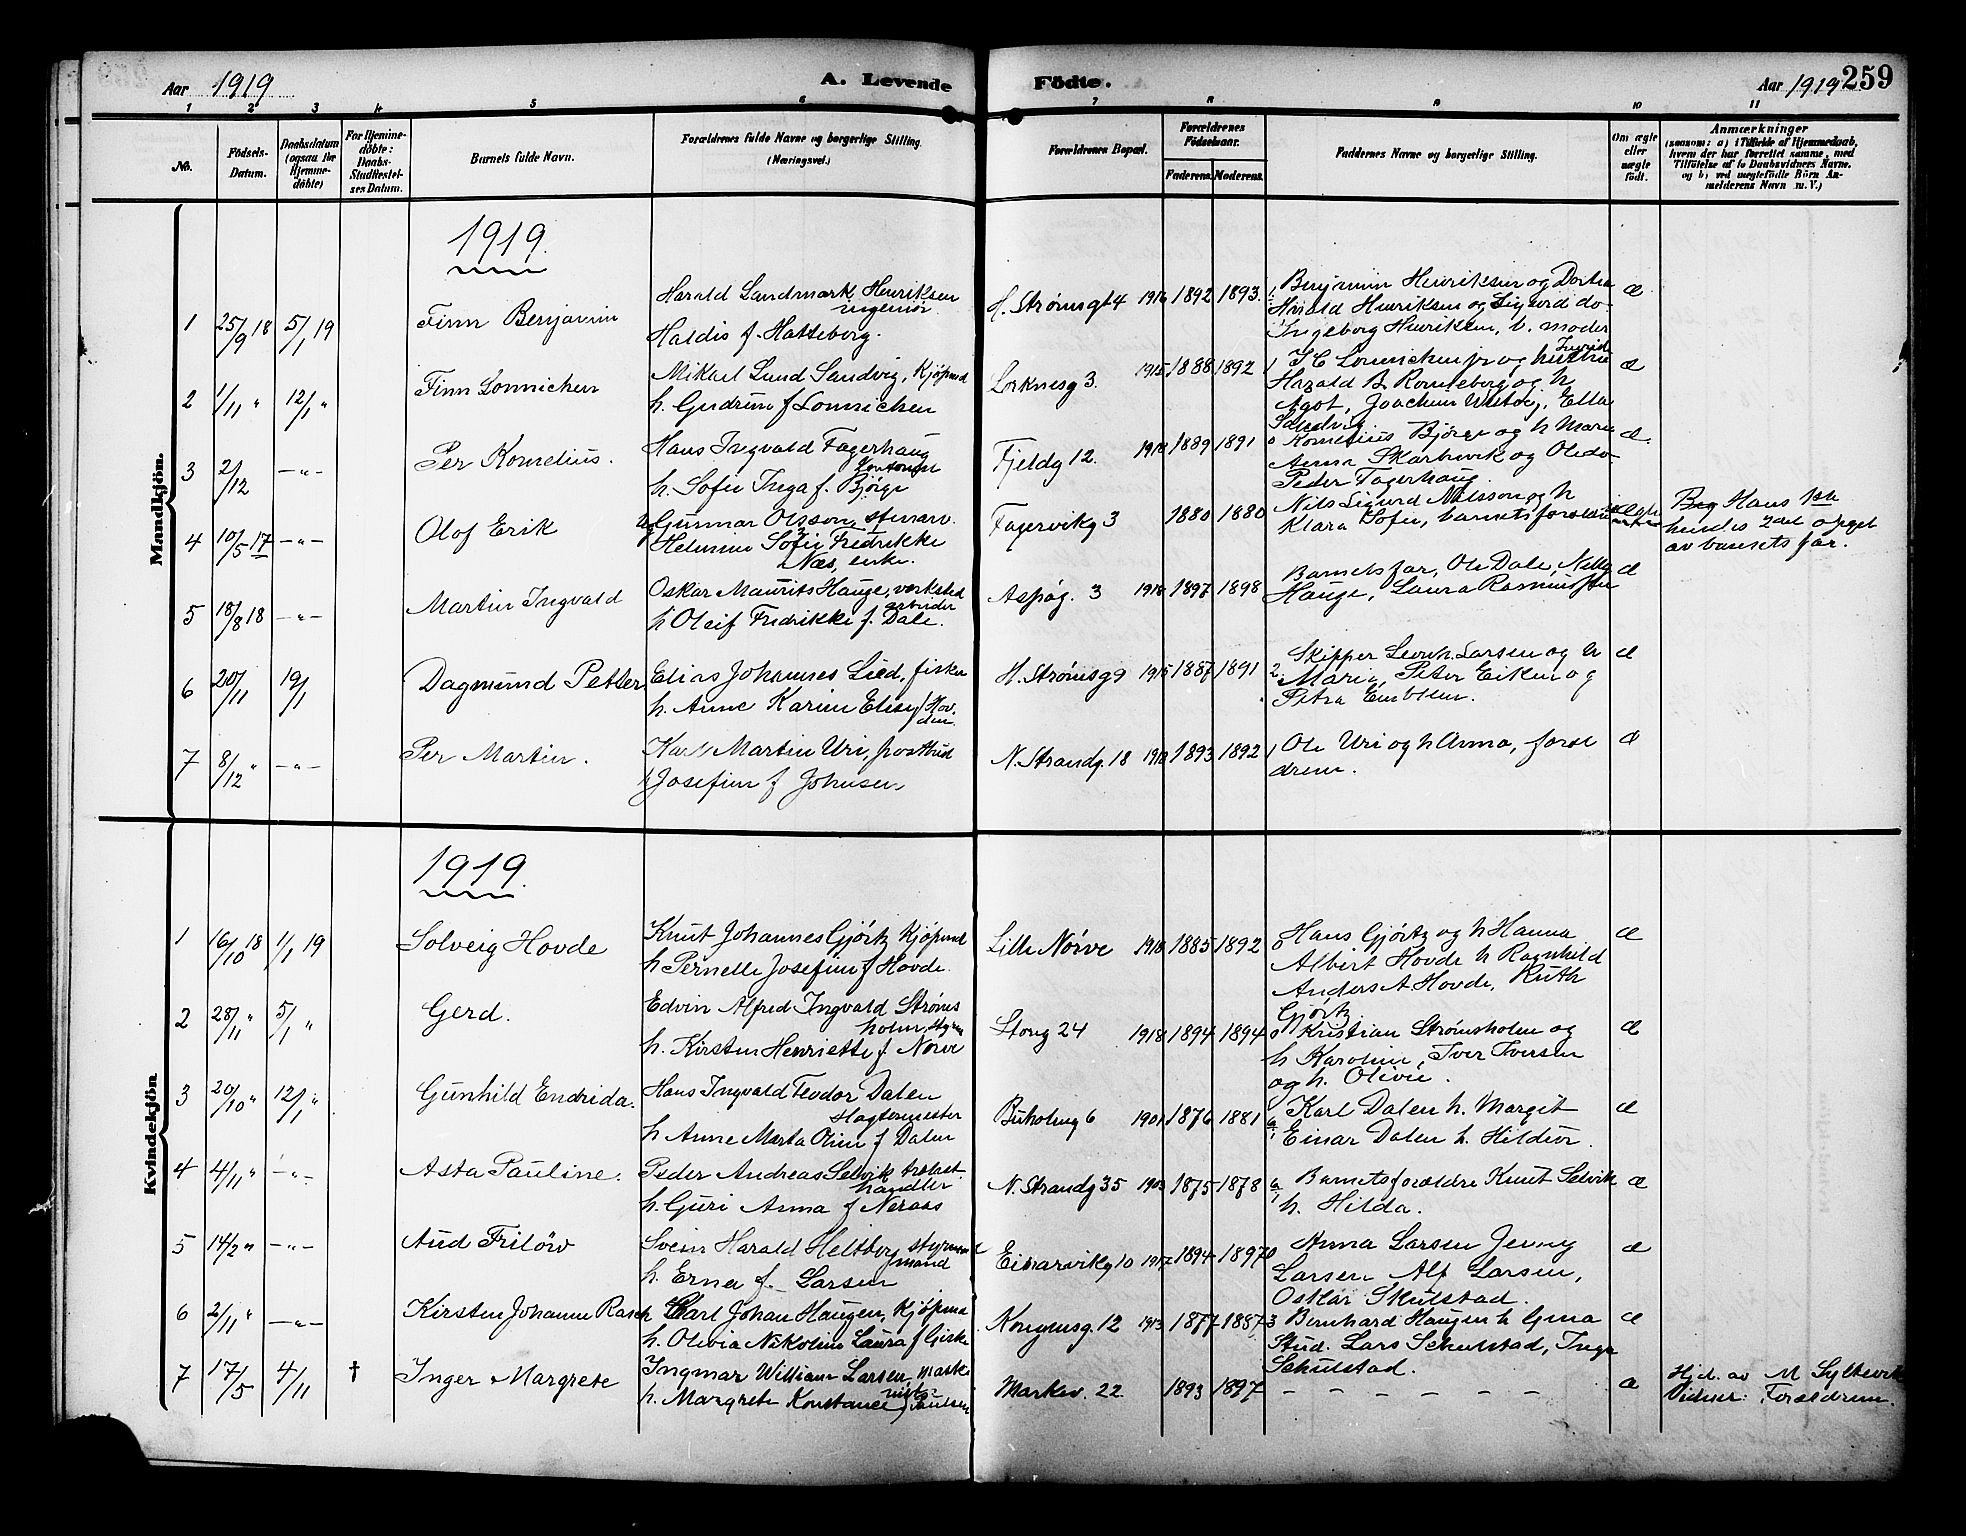 Aar 1919 A. Levende Födte. Aar 1919 259
1 2 3 4 5 6 7 8 9 10 11
No.
Födsels-Datum.
Daabsdatum (ogsaa for Hjemmedöbte)
For Hjemmedöbte: Daabs-Stadfestelses Datum.
Barnets fulde Navn.
Forældrenes fulde Navne og borgerlige Stilling.
(Næringsvei.)
Forældrenes Bopæl.
Forældrenes Födselsaar.
Faderens. Moderens.
Faddernes Navne og borgerlige Stilling.
Om ægte eller uægte födt.
Anmærkninger
(saasom: a) i Tilfælde af Hjemmedaab, hvem der har forrettet samme, med Tilföielse af to Daabsvidners Navne. og b) ved uægtefödte Börn Anmelderens Navn m. V.)
Mandkjön.
1919.
1 25/9 18 5/1 19 Finn Benjamin
Harald Landmark Henriksen
ingeniør
Haldis f. Hatteborg.
H. Strømsgt 4 1916 1892 1893.
Benjamin Henriksen og Dortea
Harald Henriksen og Sigurd do
Ingeborg Henriksen, b. moder
æ
2 1/11 " 12/1 " Finn Lonnichen
Mikael Lund Sandvig, Kjøpmd
h. Gudrun f Lonnichen
Lorknesg 3. 1915 1888 1892 1
I C Lonnichen jr og hustru Ingrid
Harald B Romleborg og h
Agot, Joachim, Ella
Sandvig.
æ
3 2/12 -"- Per Kornelius.
Hans Ingvald Fagerhaug
h. Sofie Inga f. Bjørge
Fjeldg 12. 1918 1889 1891 0
Kornelius Bjørge og h Marie
Anna Skarbøvik og Ole do
Peder Fagerhaug
æ.
4 10/5 17 -"- Olof Erik
Gunnar Olsson,
Helmine Sofie Fredrikke
Næs, enke.
Fagervikg 3 1880 1880
Nils Sigurd Nilsson og h
Klara Sofie, barnets forældre
Hans 1ste
hendes 2det opget
av barnets far.
5 18/8 18 -"- Martin Ingvald
Oskar Maurits Hauge, verksted
arbeider
h Oleif Fredrikke f. Dale.
Aspøg. 3 1918 1897 1898
Barnets far, Ole Dale, Nelly
Hauge, Laura Rasmussen
æ
6 20/11 19/1 Dagmund Petter
Elias Johannes Lied, fisker
h. Anne Karine Elise f Hov-
den.
H. Strømsg 9 1915 1887 1891 2
Skipper Leonh. Larsen og h
Marie, Peter Eiken og
Petra Emblem.
æ
7 8/12 " -"- Per Martin.
Karl Martin Uri, postbud
h Josefine f Johnsen
N. Strandg. 18 1918 1893 1892 1
Ole Uri og h Anna, foræl
drene.
æ
Kvindekjön
1919.
1 16/10 18 1/1 19 Solveig Hovde
Knut Johannes Gjørtz Kjøpmd
h Pernelle Josefine f Hovde.
Lille Nørve 1918 1885 1892 0
Hans Gjørtz og h Hanna
Albert Hovde h Ragnhild
Anders A. Hovde, Ruth
Gjørtz.
æ
2 28/11 " 5/1 " Gerd.
Edvin Alfred Ingvald Strøms
holm, styrm
h. Kirsten Henriette f Nørve
Storg 24 1918 1894 1894 0
Kristian Strømsholm og
h Karoline, Iver Iversen
og h. Olivie.
æ
3 20/10 " 12/1 " Gunhild Endrida.
Hans Ingvald Teodor Dalen
slagtermester
h Anne Marta Oline f Dalen
Buholmg 6 1901 1876 1881
Karl Dalen h. Margit
Einar Dalen h. Hildur.
æ
4 4/11 " -"- Asta Pauline.
Peder Andreas Selvik trelast-
handler
h. Guri Anna f Neraas
N. Strandg 35 1903 1875 1878
Barnets forældre Knut Selvik
h. Hilda.
æ
5 14/2 " -"- Aud Friløv
Svein Harald Heltberg styrmand
h. Erna f. Larsen
Einarvikg 10 1917 1894 1897 0
Anna Larsen Jenny
Larsen Alf Larsen,
Oskar Skulstad.
æ
6 2/11 " -"- Kirsten Johanne Rasch
Carl Johan Haugen, Kjøpmd
h. Olivia Nikoline Laura f Giske
Kongensg. 12 1913 1877 1887 3
Bernhard Haugen h Gina
Stud. Lars Schulstad, Inga
Schulstad.
æ
7 17/5 4/11 † Inger Margrete
Ingmar William Larsen, maski
nist
h. Margrete Konstance f Paulsen
Markev. 22 1893 1897 - - - - - - -
æ
Hjd. av M Sylte
Vidner: Forældrene.